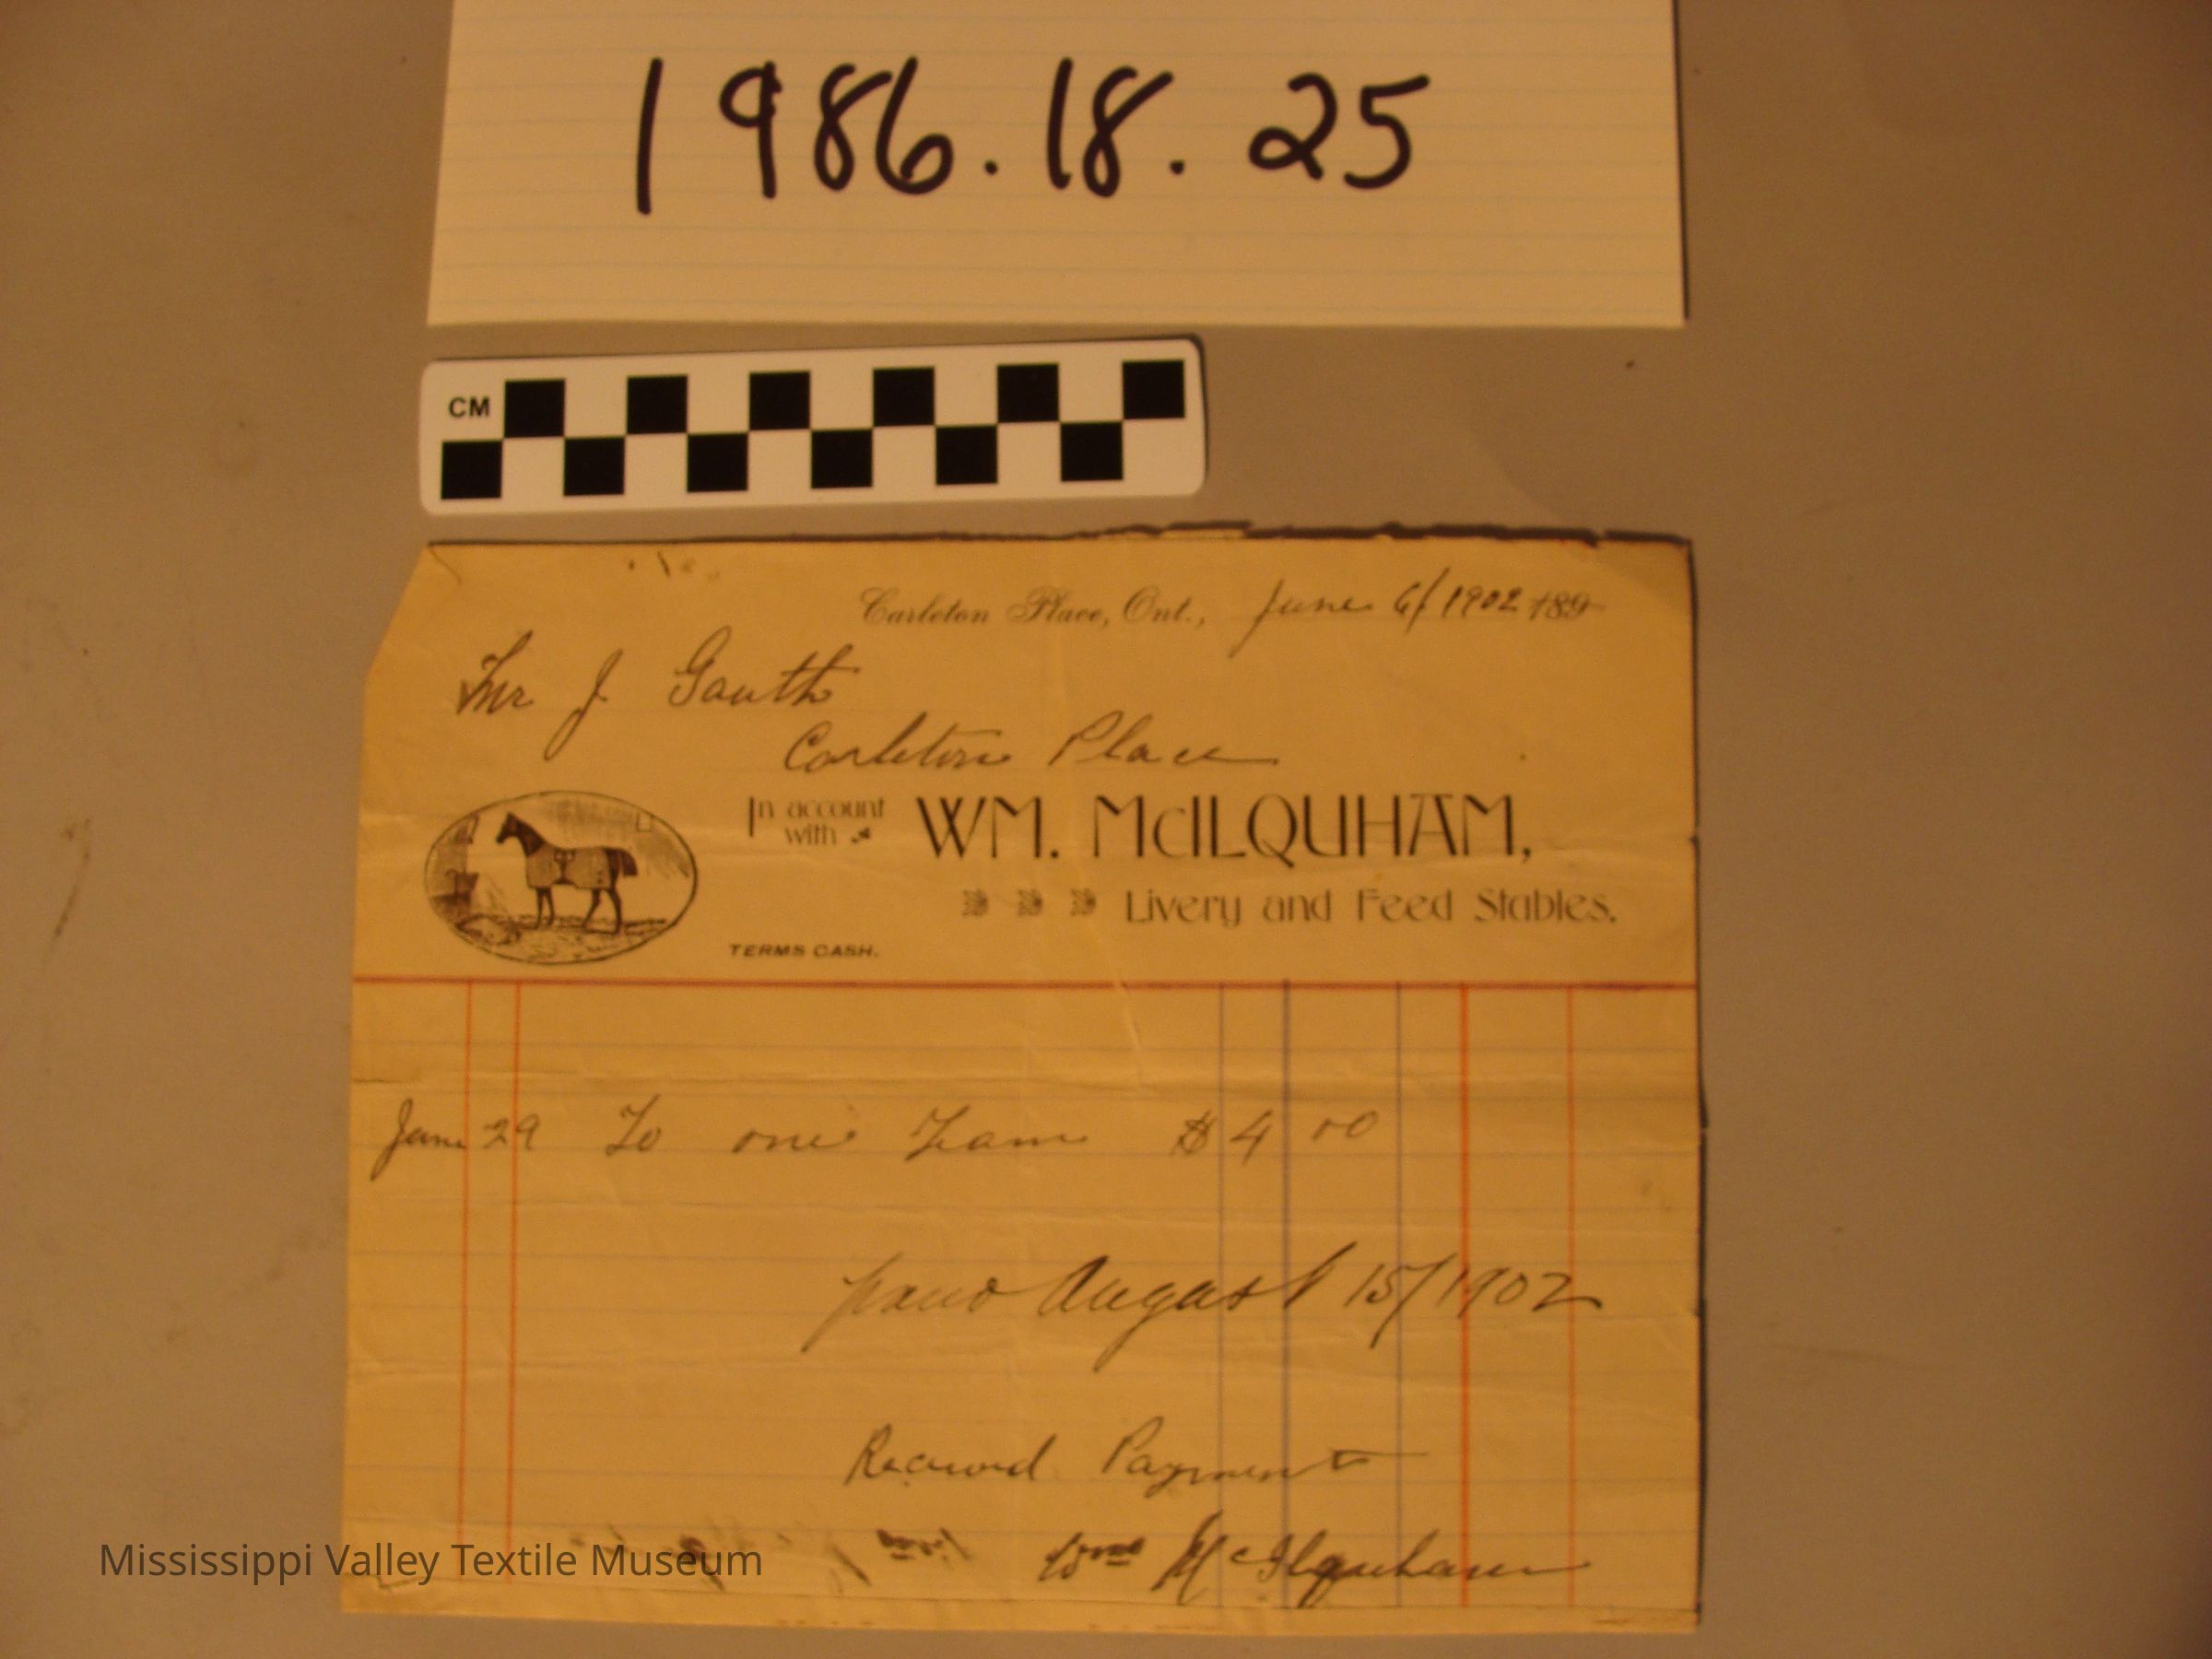 1986.18.25
CM
Carleton Place, Ont., June 6/1902 189
Mr J. Gauth
Carleton Place
In account with WM. McILQUHAM,
Livery and Feed Stables.
TERMS CASH.
June 29 To one Team $4 00
paid August 15/1902
Received Payment
Wm McIlquham
Mississippi Valley Textile Museum